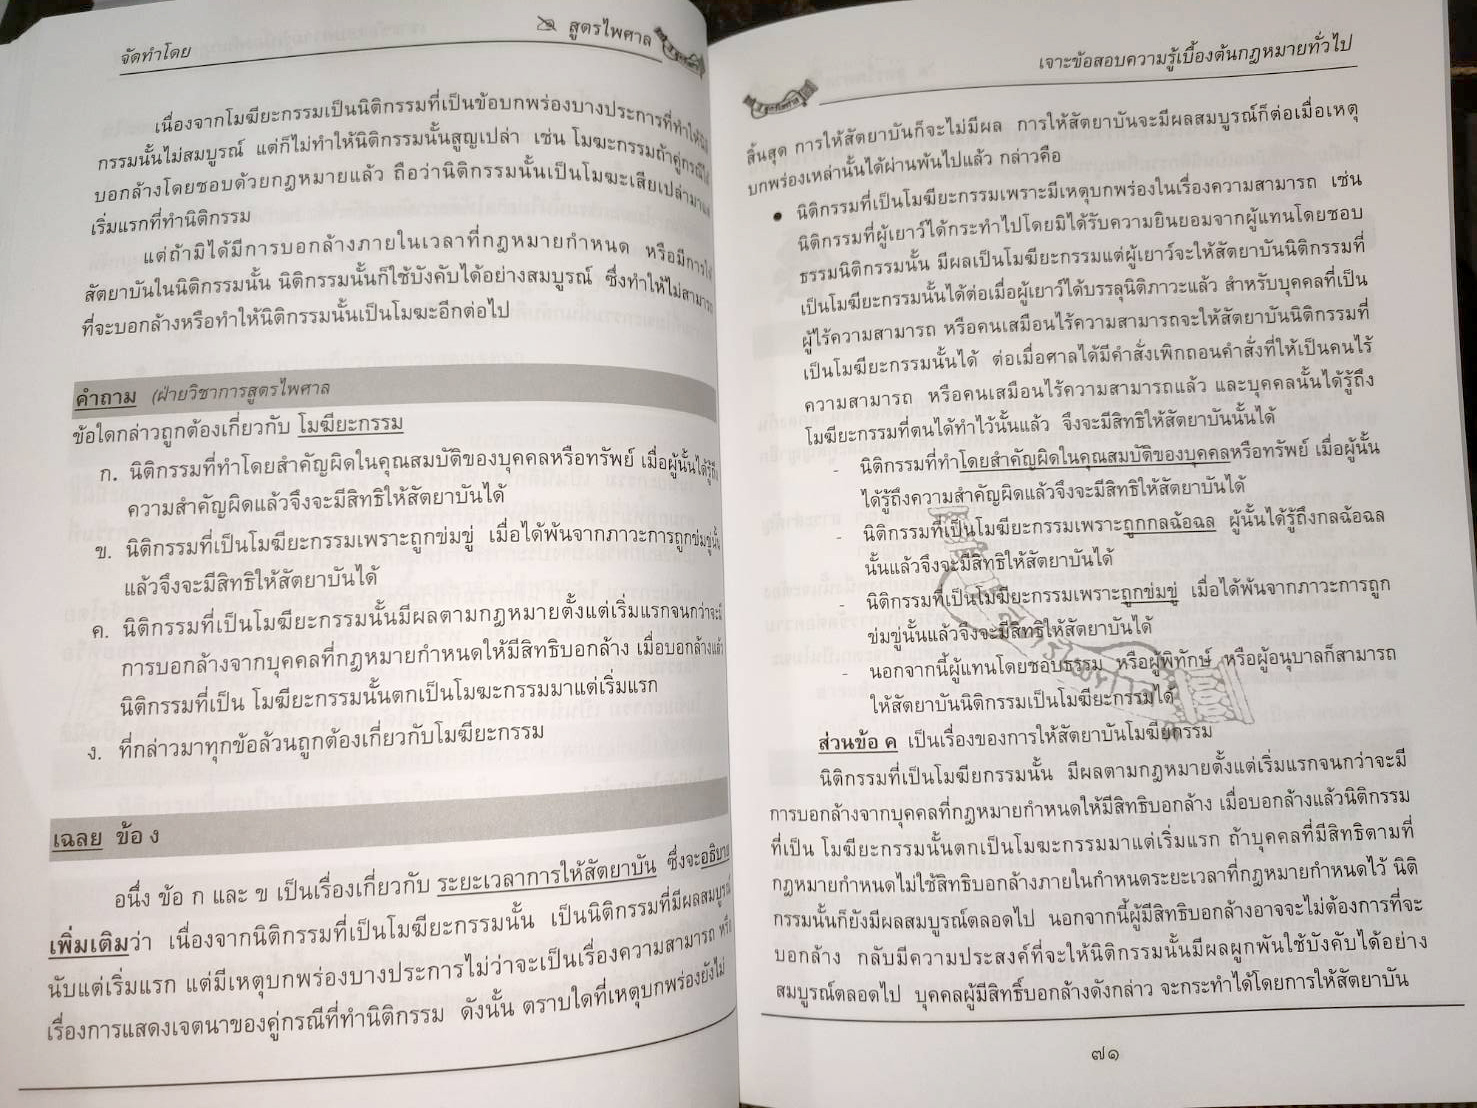 จัดทำโดย
สูตรไพศาล
เนื่องจากโมฆียะกรรมเป็นนิติกรรมที่เป็นข้อบกพร่องบางประการที่ทำให้นิติ
กรรมนั้นไม่สมบูรณ์ แต่ก็ไม่ทำให้นิติกรรมนั้นสูญเปล่า เช่น โมฆะกรรมถ้าคู่กรณีได้
บอกล้างโดยชอบด้วยกฎหมายแล้ว ถือว่านิติกรรมนั้นเป็นโมฆะเสียเปล่ามาแต่
เริ่มแรกที่ทำนิติกรรม
แต่ถ้ามิได้มีการบอกล้างภายในเวลาที่กฎหมายกำหนด หรือมีการให้
สัตยาบันในนิติกรรมนั้น นิติกรรมนั้นก็ใช้บังคับได้อย่างสมบูรณ์ ซึ่งทำให้ไม่สามารถ
ที่จะบอกล้างหรือทำให้นิติกรรมนั้นเป็นโมฆะอีกต่อไป
คำถาม (ฝ่ายวิชาการสูตรไพศาล
ข้อใดกล่าวถูกต้องเกี่ยวกับ โมฆียะกรรม
ก. นิติกรรมที่ทำโดยสำคัญผิดในคุณสมบัติของบุคคลหรือทรัพย์ เมื่อผู้นั้นได้รู้ถึง
ความสำคัญผิดแล้วจึงจะมีสิทธิให้สัตยาบันได้
ข. นิติกรรมที่เป็นโมฆียะกรรมเพราะถูกข่มขู่ เมื่อได้พ้นจากภาวะการถูกข่มขู่นั้น
แล้วจึงจะมีสิทธิให้สัตยาบันได้
ค. นิติกรรมที่เป็นโมฆียะกรรมนั้นมีผลตามกฎหมายตั้งแต่เริ่มแรกจนกว่าจะมี
การบอกล้างจากบุคคลที่กฎหมายกำหนดให้มีสิทธิบอกล้าง เมื่อบอกล้างแล้ว
นิติกรรมที่เป็น โมฆียะกรรมนั้นตกเป็นโมฆะกรรมมาแต่เริ่มแรก
ง. ที่กล่าวมาทุกข้อล้วนถูกต้องเกี่ยวกับโมฆียะกรรม
เฉลย ข้อ ง
อนึ่ง ข้อ ก และ ข เป็นเรื่องเกี่ยวกับ ระยะเวลาการให้สัตยาบัน ซึ่งจะอธิบาย
เพิ่มเติมว่า เนื่องจากนิติกรรมที่เป็นโมฆียะกรรมนั้น เป็นนิติกรรมที่มีผลสมบูรณ์
นับแต่เริ่มแรก แต่มีเหตุบกพร่องบางประการไม่ว่าจะเป็นเรื่องความสามารถ หรือ
เรื่องการแสดงเจตนาของคู่กรณีที่ทำนิติกรรม ดังนั้น ตราบใดที่เหตุบกพร่องยังไม่
เจาะข้อสอบความรู้เบื้องต้นกฎหมายทั่วไป
สิ้นสุด การให้สัตยาบันก็จะไม่มีผล การให้สัตยาบันจะมีผลสมบูรณ์ก็ต่อเมื่อเหตุ
บกพร่องเหล่านั้นได้ผ่านพ้นไปแล้ว กล่าวคือ
• นิติกรรมที่เป็นโมฆียะกรรมเพราะมีเหตุบกพร่องในเรื่องความสามารถ เช่น
นิติกรรมที่ผู้เยาว์ได้กระทำไปโดยมิได้รับความยินยอมจากผู้แทนโดยชอบ
ธรรมนิติกรรมนั้น มีผลเป็นโมฆียะกรรมแต่ผู้เยาว์จะให้สัตยาบันนิติกรรมที่
เป็นโมฆียะกรรมนั้นได้ต่อเมื่อผู้เยาว์ได้บรรลุนิติภาวะแล้ว สำหรับบุคคลที่เป็น
ผู้ไร้ความสามารถ หรือคนเสมือนไร้ความสามารถจะให้สัตยาบันนิติกรรมที่
เป็นโมฆียะกรรมนั้นได้ ต่อเมื่อศาลได้มีคำสั่งเพิกถอนคำสั่งที่ให้เป็นคนไร้
ความสามารถ หรือคนเสมือนไร้ความสามารถแล้ว และบุคคลนั้นได้รู้ถึง
โมฆียะกรรมที่ตนได้ทำไว้นั้นแล้ว จึงจะมีสิทธิให้สัตยาบันนั้นได้
- นิติกรรมที่ทำโดยสำคัญผิดในคุณสมบัติของบุคคลหรือทรัพย์ เมื่อผู้นั้น
ได้รู้ถึงความสำคัญผิดแล้วจึงจะมีสิทธิให้สัตยาบันได้
- นิติกรรมที่เป็นโมฆียะกรรมเพราะถูกกลฉ้อฉล ผู้นั้นได้รู้ถึงกลฉ้อฉล
นั้นแล้วจึงจะมีสิทธิให้สัตยาบันได้
- นิติกรรมที่เป็นโมฆียะกรรมเพราะถูกข่มขู่ เมื่อได้พ้นจากภาวะการถูก
ข่มขู่นั้นแล้วจึงจะมีสิทธิให้สัตยาบันได้
- นอกจากนี้ผู้แทนโดยชอบธรรม หรือผู้พิทักษ์ หรือผู้อนุบาลก็สามารถ
ให้สัตยาบันนิติกรรมเป็นโมฆียะกรรมได้
ส่วนข้อ ค เป็นเรื่องของการให้สัตยาบันโมฆียกรรม
นิติกรรมที่เป็นโมฆียกรรมนั้น มีผลตามกฎหมายตั้งแต่เริ่มแรกจนกว่าจะมี
การบอกล้างจากบุคคลที่กฎหมายกำหนดให้มีสิทธิบอกล้าง เมื่อบอกล้างแล้วนิติกรรม
ที่เป็น โมฆียะกรรมนั้นตกเป็นโมฆะกรรมมาแต่เริ่มแรก ถ้าบุคคลที่มีสิทธิตามที่
กฎหมายกำหนดไม่ใช้สิทธิบอกล้างภายในกำหนดระยะเวลาที่กฎหมายกำหนดไว้ นิติ
กรรมนั้นก็ยังมีผลสมบูรณ์ตลอดไป นอกจากนี้ผู้มีสิทธิบอกล้างอาจจะไม่ต้องการที่จะ
บอกล้าง กลับมีความประสงค์ที่จะให้นิติกรรมนั้นมีผลผูกพันใช้บังคับได้อย่าง
สมบูรณ์ตลอดไป บุคคลผู้มีสิทธิ์บอกล้างดังกล่าว จะกระทำได้โดยการให้สัตยาบัน
๗๑